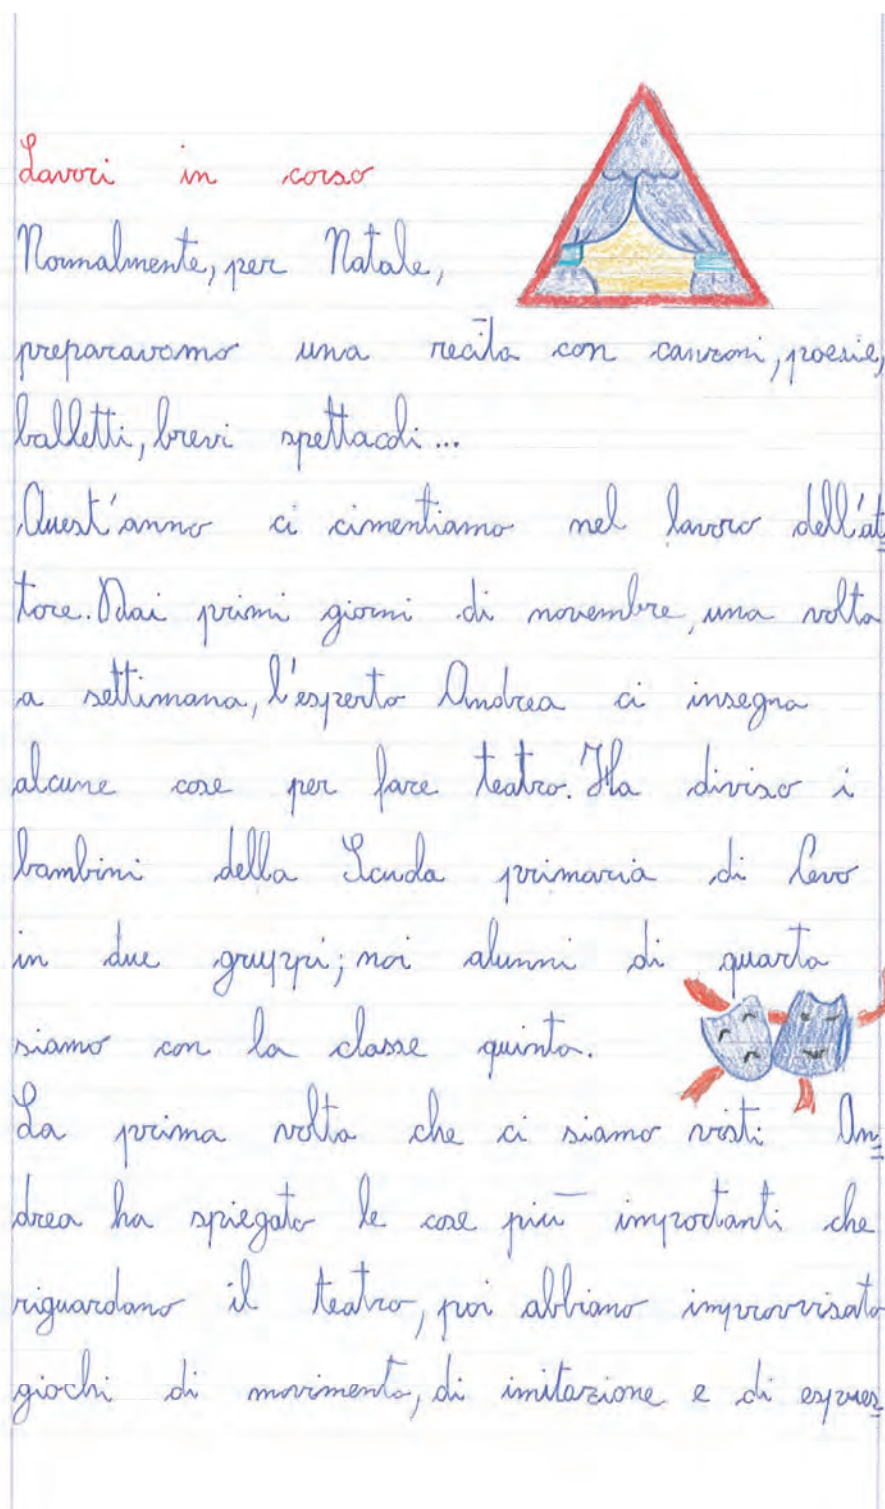 Lavori in corso
Normalmente, per Natale,
preparavamo una recita con canzoni, poesie,
balletti, brevi spettacoli...
Quest'anno ci cimentiamo nel lavoro dell'at=
tore. Dai primi giorni di novembre, una volta
a settimana, l'esperto Andrea ci insegna
alcune cose per fare teatro. Ha diviso i
bambini della Scuola primaria di Levo
in due gruppi; noi alunni di quarta
siamo con la classe quinta.
La prima volta che ci siamo visti An=
drea ha spiegato le cose più importanti che
riguardano il teatro, poi abbiamo improvvisato
giochi di movimento, di imitazione e di espres=